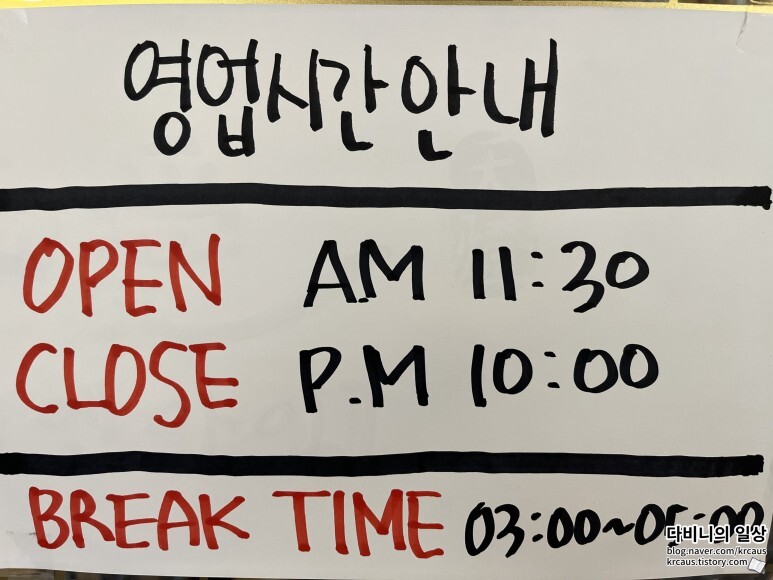 영업시간안내
OPEN A.M 11:30
CLOSE P.M 10:00
BREAK TIME 03:00~05:00
다비니의 일상
blog.naver.com/krcaus
krcaus.tistory.com